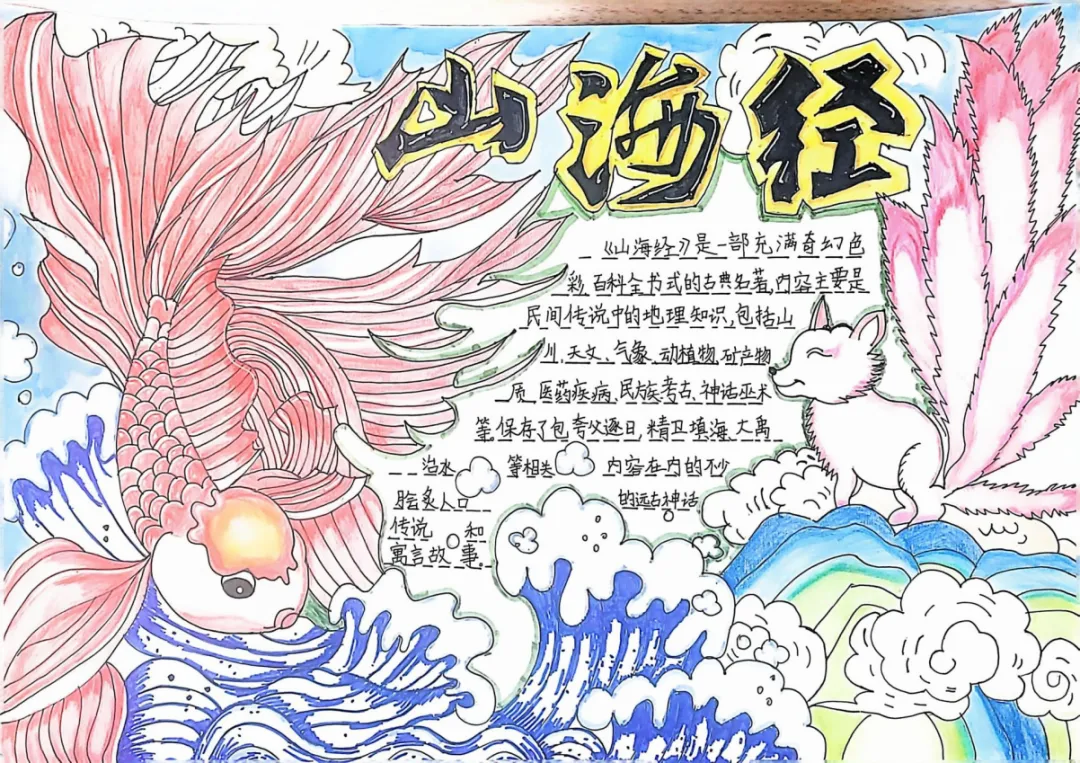 山海经
《山海经》是一部充满奇幻色
彩,百科全书式的古典名著,内容主要是
民间传说中的地理知识,包括山
川、天文、气象、动植物、矿产物
质、医药疾病、民族考古、神话巫术
等,保存了包夸父逐日,精卫填海、大禹
治水 等相关 内容在内的不少
脍炙人口 的远古神话
传说 和
寓言故事。